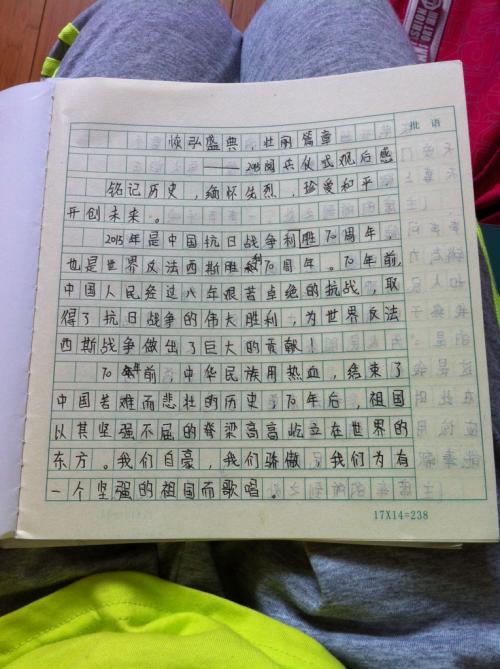 恢弘盛典,壮丽篇章
——2015阅兵仪式观后感
铭记历史,缅怀先烈,珍爱和平,
开创未来。
2015年是中国抗日战争利胜70周年,
也是世界反法西斯胜利70周年。70年前,
中国人民经过八年艰苦卓绝的抗战,取
得了抗日战争的伟大胜利,为世界反法
西斯战争做出了巨大的贡献!
70年前,中华民族用热血,结束了
中国苦难而悲壮的历史,70年后,祖国
以其坚强不屈的脊梁高高屹立在世界的
东方。我们自豪,我们骄傲,我们为有
一个坚强的祖国而歌唱。
批语
17X14=238
FASHION